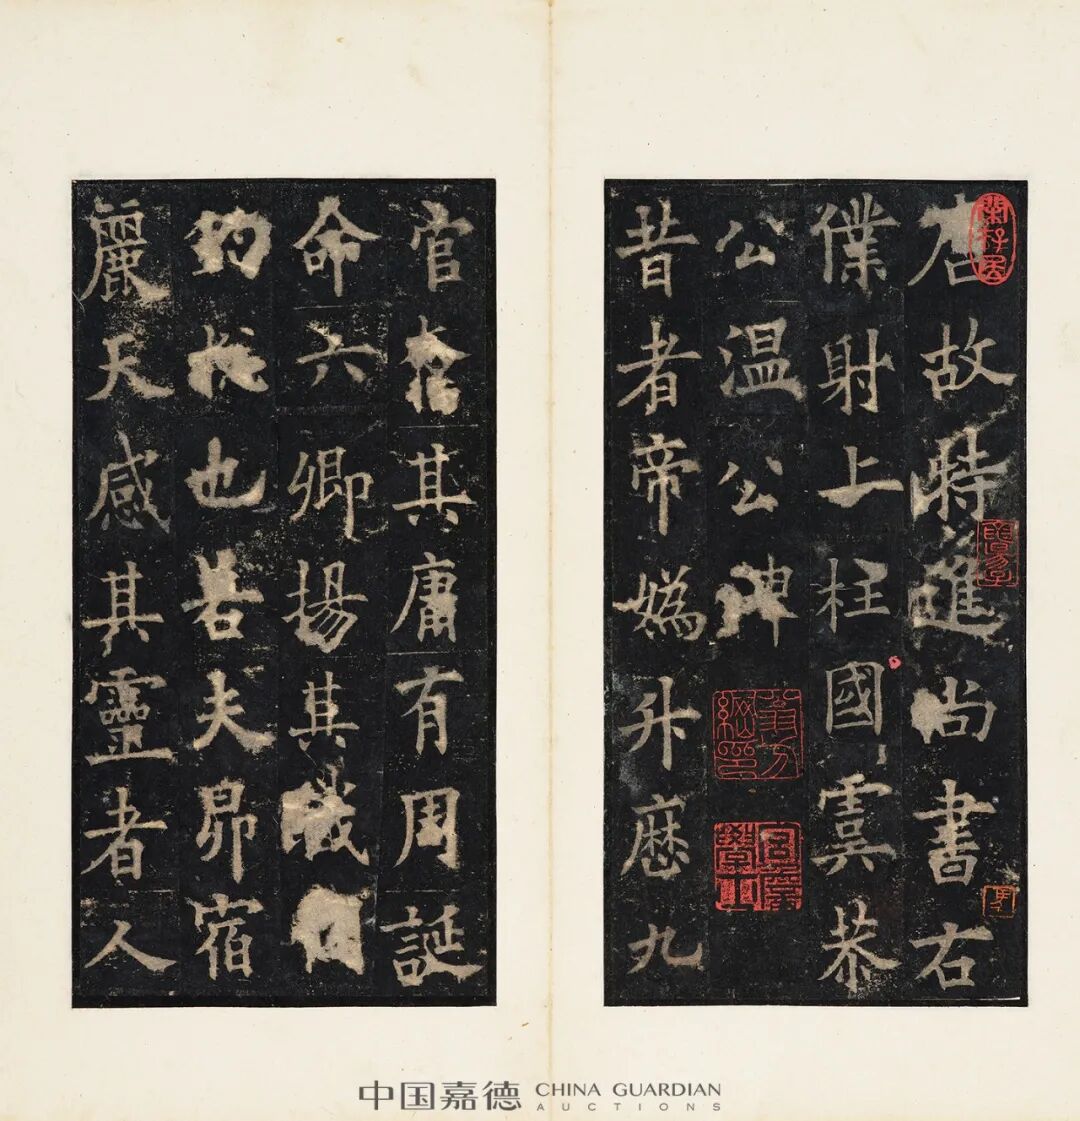 唐故特進尚書右
僕射上柱國虞恭
公温公碑
翁方綱印
昔者帝媯升歷九
官奮其庸有周誕
命六卿揚其職
也若夫昴宿
麗天感其靈者人
中国嘉德 CHINA GUARDIAN
AUCTIONS